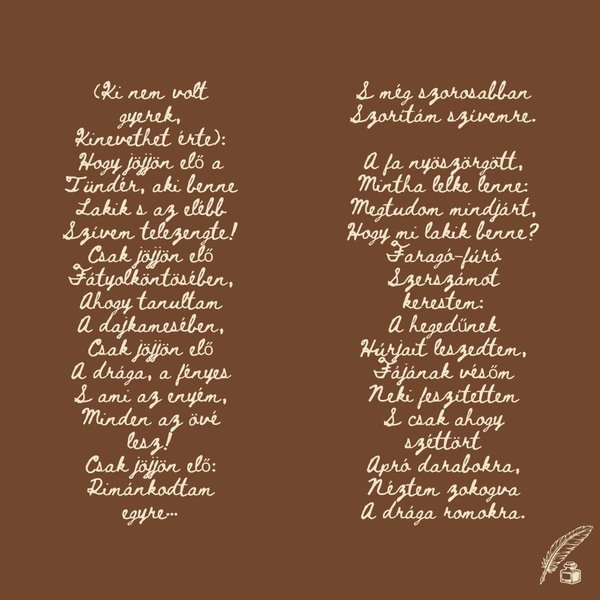 (Ki nem volt
gyerek,
Kinevethet érte):
Hogy jöjjön elő a
Tündér, aki benne
Lakik s az elébb
Szívem telezengte!
Csak jöjjön elő
Fátyolköntösében,
Ahogy tanultam
A dajkamesében,
Csak jöjjön elő
A drága, a fényes
S ami az enyém,
Minden az övé
lesz!
Csak jöjjön elő:
Rimánkodtam
egyre...
S még szorosabban
Szorítám szívemre.
A fa nyöszörgött,
Mintha lelke lenne:
Megtudom mindjárt,
Hogy mi lakik benne?
Faragó-fúró
Szerszámot
kerestem:
A hegedűnek
Húrjait leszedtem,
Fájának vésőm
Neki feszítettem
S csak ahogy
széttört
Apró darabokra,
Néztem zokogva
A drága romokra.